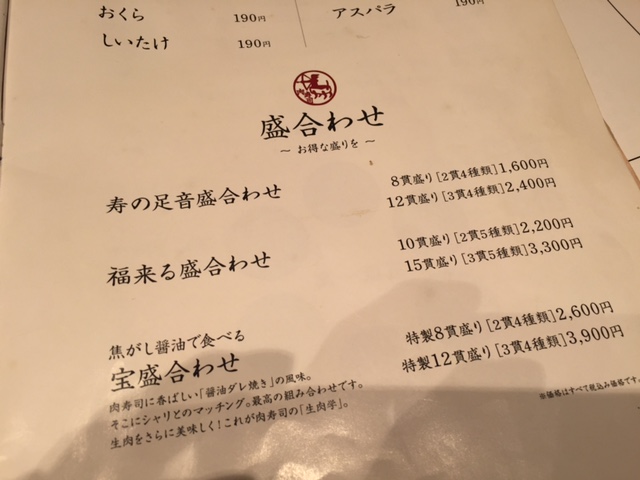 おくら 190円
アスパラ 190円
しいたけ 190円
盛合わせ
～ お得な盛りを ～
寿の足音盛合わせ
8貫盛り[2貫4種類]1,600円
12貫盛り[3貫4種類]2,400円
福来る盛合わせ
10貫盛り[2貫5種類]2,200円
15貫盛り[3貫5種類]3,300円
焦がし醤油で食べる
宝盛合わせ
特製8貫盛り[2貫4種類]2,600円
特製12貫盛り[3貫4種類]3,900円
肉寿司に香ばしい「醤油ダレ焼き」の風味。
そこにシャリとのマッチング。最高の組み合わせです。
生肉をさらに美味しく!これが肉寿司の「生肉学」。
※価格はすべて税込み価格です。